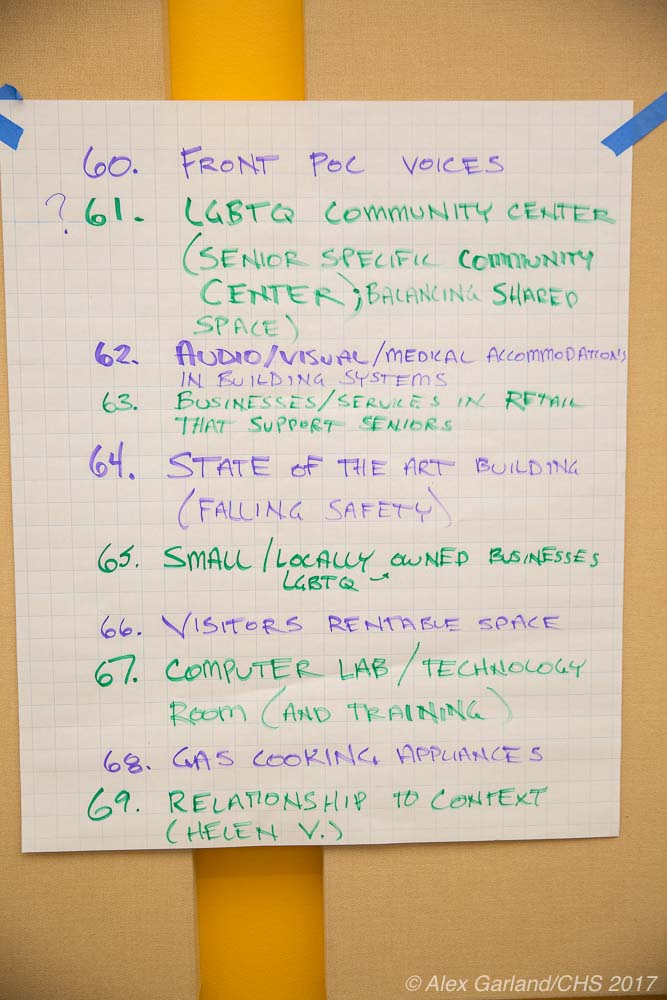 60. FRONT POC VOICES
? 61. LGBTQ COMMUNITY CENTER
(SENIOR SPECIFIC COMMUNITY
CENTER); BALANCING SHARED
SPACE)
62. AUDIO/VISUAL/MEDICAL ACCOMMODATIONS
IN BUILDING SYSTEMS
63. BUSINESSES/SERVICES IN RETAIL
THAT SUPPORT SENIORS
64. STATE OF THE ART BUILDING
(FALLING SAFETY)
65. SMALL/LOCALLY OWNED BUSINESSES
LGBTQ
66. VISITORS RENTABLE SPACE
67. COMPUTER LAB/TECHNOLOGY
ROOM (AND TRAINING)
68. GAS COOKING APPLIANCES
69. RELATIONSHIP TO CONTEXT
(HELEN V.)
© Alex Garland/CHS 2017